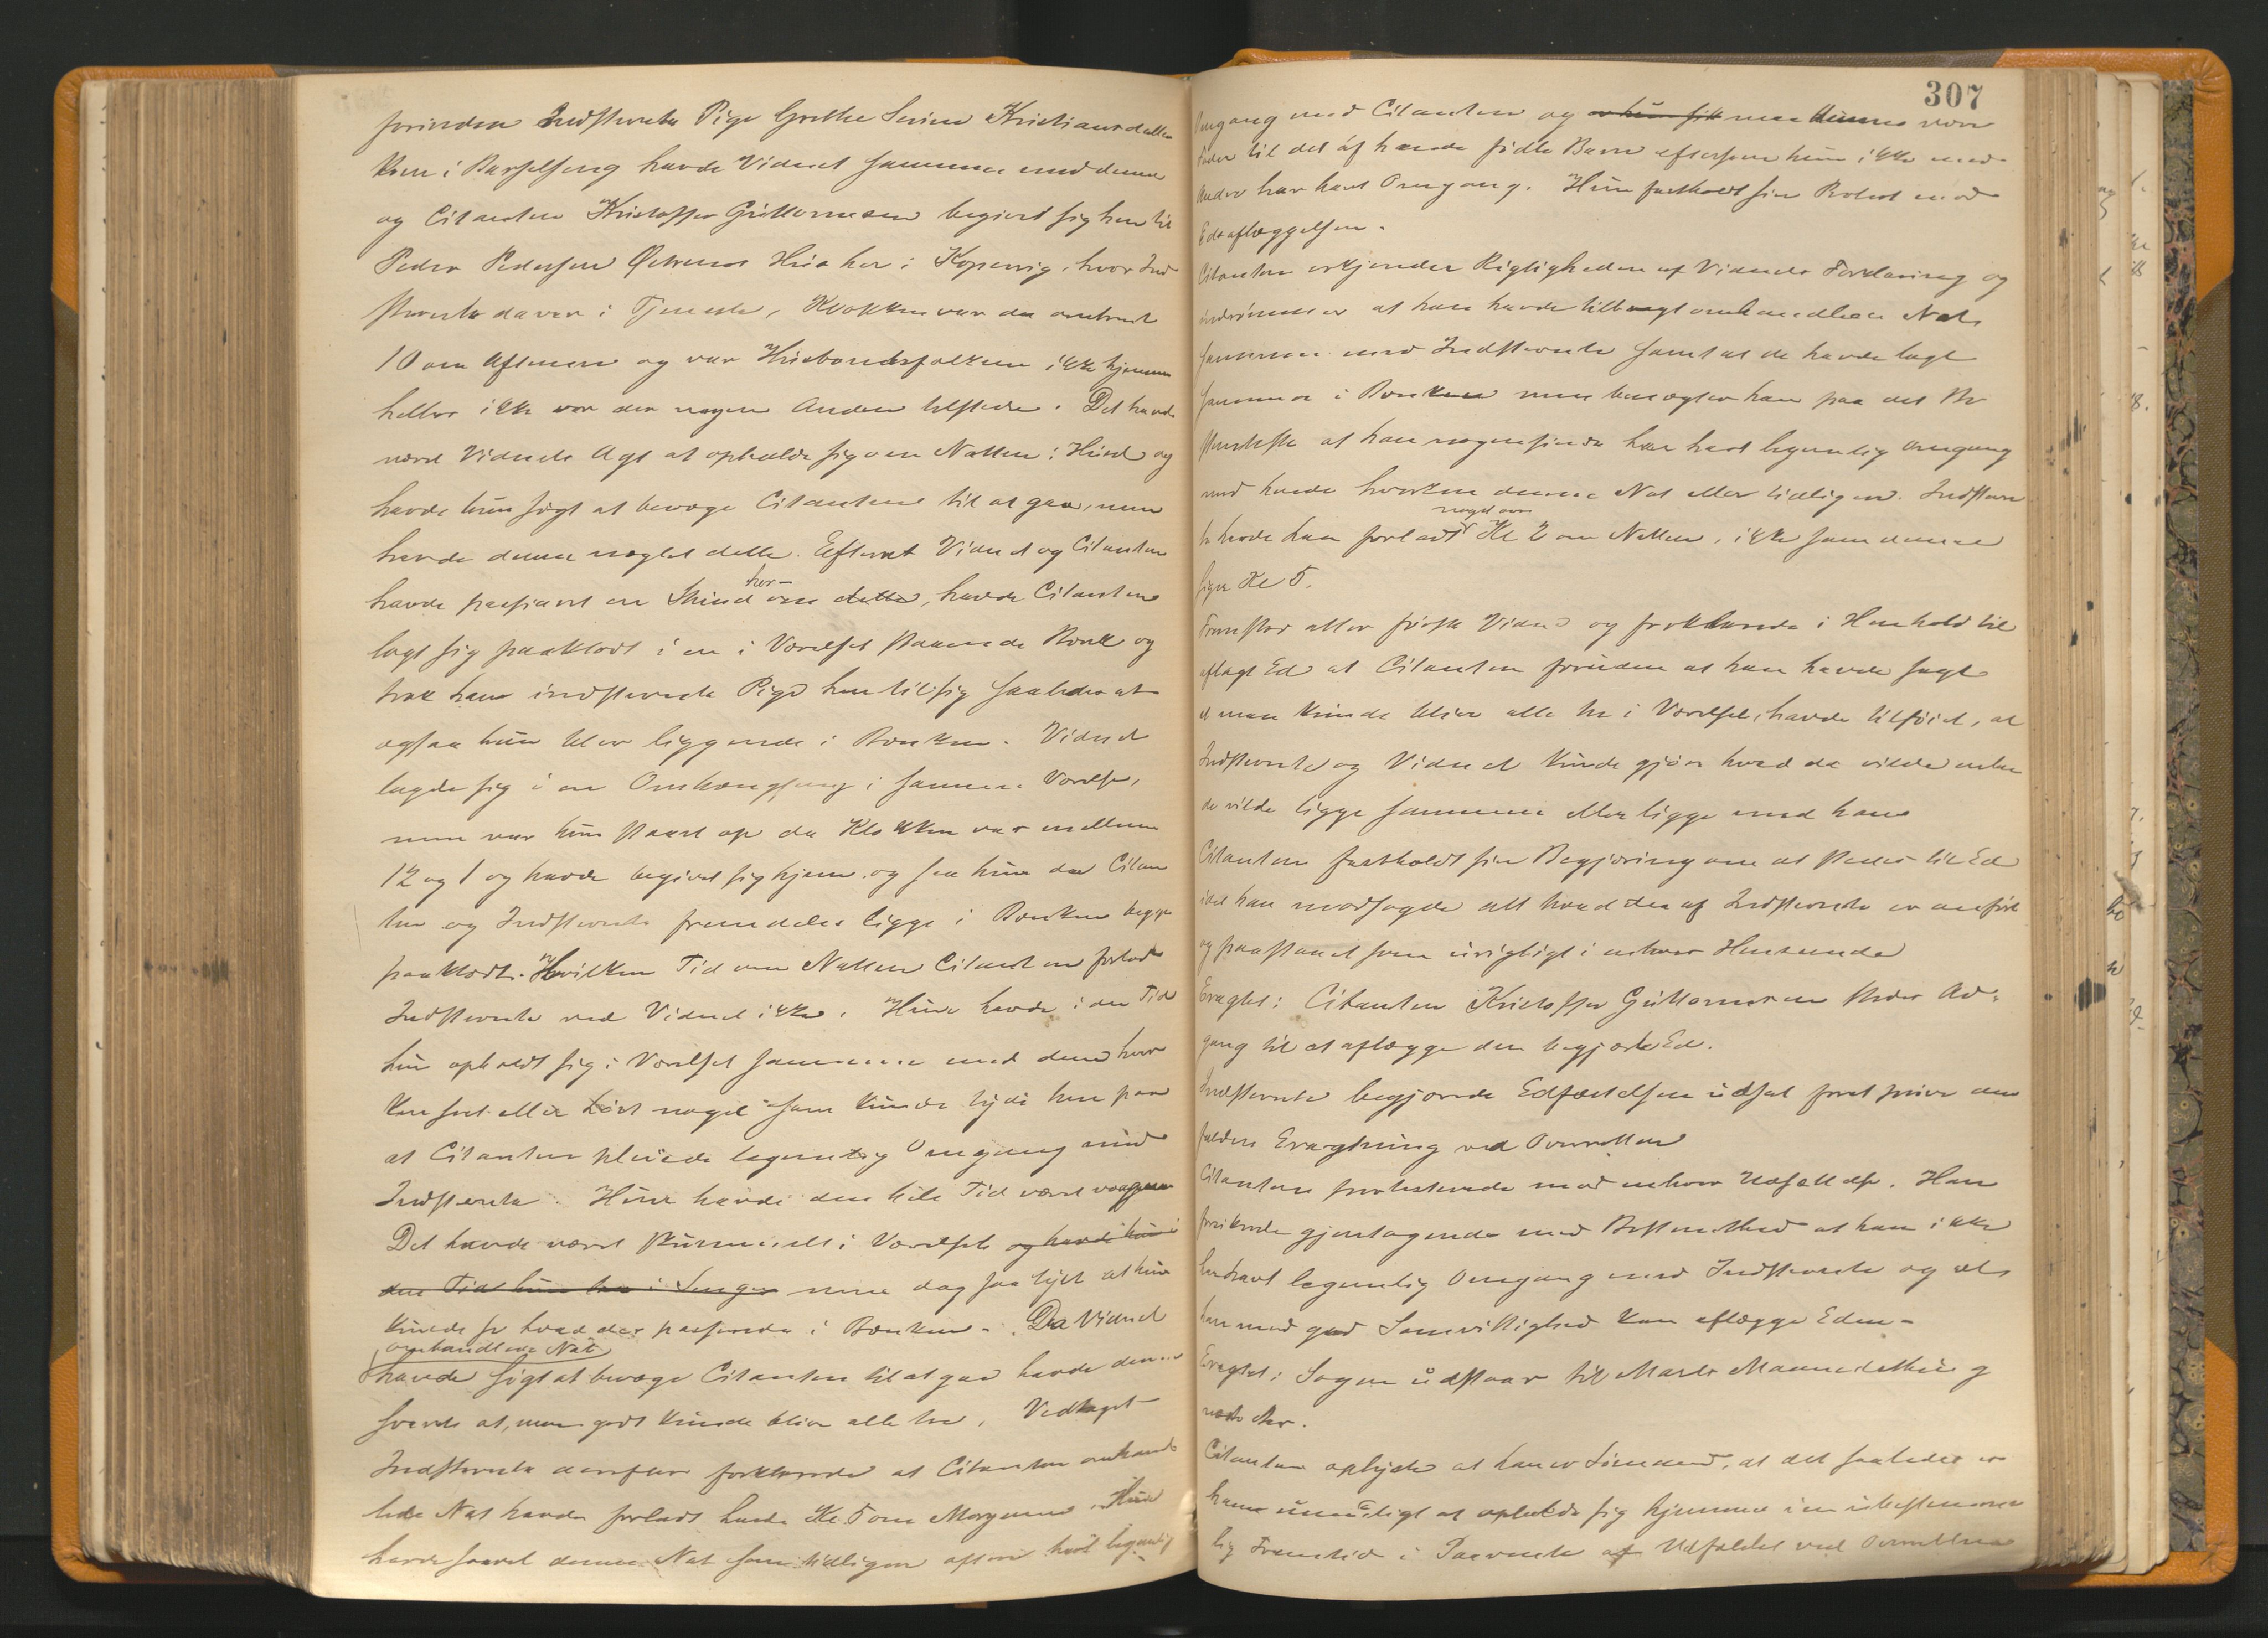 forinden Indstevnte Pige Grethe Serine Kristiansdatter
kom i Barselseng havde Vidnet sammen med denne
og Citanten Kristoffer Guttormsen begivet sig hen til
Peder Pedersen Østrems Hus her i Kopervig, hvor Ind
stevnte da var i Tjeneste, Klokken var da omtrent
10 om Aftenen og var Husbondsfolkene ikke hjemme
heller ikke var der nogen Anden tilstede. Det havde
været Vidnets Agt at opholde sig om Natten i Huset og
havde hun søgt at bevæge Citanten til at gaa, men
havde denne nægtet dette. Efterat Vidnet og Citanten
havde passiaret en Stund her-om dette, havde Citanten
lagt sig paaklædt i en i Værelset staaende Bænk og
trak han indstevnte Pige hen til sig saaledes at
ogsaa hun blev liggende i Bænken. Vidnet
lagde sig i en Omhængseng i samme Værelse,
men var hun staaet op da Klokken var mellem
12 og 1 og havde begivet sig hjem og saa hun da Citan
ten og Indstevnte fremdeles ligge i Bænken begge
paaklædt. Hvilken Tid om Natten Citanten forlod
Indstevnte ved Vidnet ikke. Hun havde i den Tid
hun opholdt sig i Værelset sammen med dem hver
ken seet eller hørt noget som kunde tyde hen paa
at Citanten pleiede legemlig Omgang med
Indstevnte. Hun havde den hele Tid været vaagen
Det havde været skummelt i Værelset og havde hun i
den Tid hun laa i Sengen men dog saa lyst at hun
kunde se hvad der passerede i Bænken. Da Vidnet
omhandlede Nat
havde søgt at bevæge Citanten til at gaa havde denne
svaret at, man godt kunde blive alle tre. Vedtaget
Indstevnte derefter forklarede at Citanten omhand
lede Nat havde forladt hende Kl. 5 om Morgenen. Hun
havde saavel denne Nat som tidligere oftere havt legemlig
307
Omgang med Citanten og er hun sik maa denne være
Fader til det af hende fødte Barn eftersom hun ikke med
Andre har havt Omgang. Hun fastholdt sin Protest mod
Edsaflæggelsen.
Citanten erkjender Rigtigheden af Vidnets Forklaring og
indrømmer at han havde tilbragt omhandlede Nat
sammen med Indstevnte samt at de havde lagt
sammen i Bænken men benægter han paa det Be
stemteste at han nogensinde har havt legemlig Omgang
med hende hverken denne Nat eller tidligere. Indstevn
te havde han forladt noget over Kl 2 om Natten, ikke som denne
siger Kl 5.
Fremstod atter første Vidne og forklarede i Henhold til
aflagt Ed at Citanten foruden at han havde sagt
at man kunde blive alle tre i Værelset, havde tilføiet, at
Indstevnte og Vidnet kunde gjøre hvad de vilde enten
de vilde ligge sammen eller ligge med ham
Citanten fastholdt sin Begjæring om at stedes til Ed
idet han modsagde alt hvad der af Indstevnte er anført
og paastaaet som urigtigt i enhver Henseende
Eragtet: Citanten Kristoffer Guttormsen stedes Ad-
gang til at aflægge den begjærte Ed.
Indstevnte begjærede Edfæstelsen udsat forat prøve den
faldne Eragtning ved Overretten
Citanten protesterede mod enhver Udsættelse. Han
forsikrede gjentagende med Bestemthed at han ikke
har havt legemlig Omgang med Indstevnte og at
han med god Samvittighed kan aflægge Eden-
Eragtet: Sagen udstaar til Marts Maanedsthing
næste Aar.
Citanten oplyste at han er Sømand, at det saaledes er
ham umuligt at opholde sig hjemme i en ubestemme
lig Fremtid i Paavente af Udfaldet ved Overretten